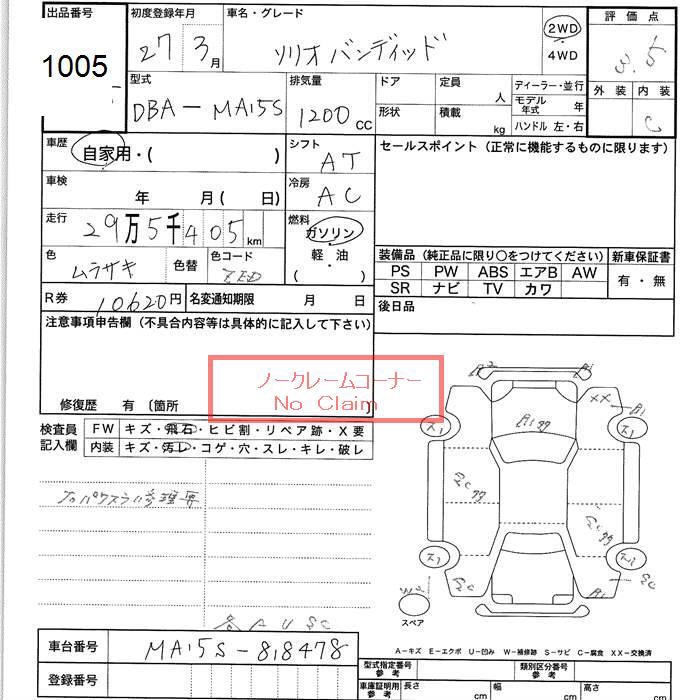 出品番号 初度登録年月 車名・グレード 評価点
1005 27 3月 ソリオバンディッド 2WD 3.5
4WD
外装 内装
C
型式 排気量 ドア 定員 人 ディーラー・並行
DBA-MA15S 1200cc 形状 積載 kg モデル年式 年
ハンドル 左・右
車歴 自家用・( ) シフト AT セールスポイント (正常に機能するものに限ります)
車検 年 月( 日) 冷房 AC
走行 29万5千405km 燃料 ガソリン
軽油
( )
色 ムラサキ 色替 色コード ZED
装備品 (純正品に限り○をつけてください) 新車保証書
PS PW ABS エアB AW 有・無
SR ナビ TV カワ
R券 10620円 名変通知期限 月 日 後日品
注意事項申告欄 (不具合内容等は具体的に記入して下さい)
ノークレームコーナー
No Claim
修復歴 有 〔箇所
検査員記入欄 FW キズ・飛石・ヒビ割・リペア跡・X要
内装 キズ・汚レ・コゲ・穴・スレ・キレ・破レ
スペア
A-キズ E-エクボ U-凹み W-補修跡 S-サビ C-腐食 XX-交換済
車台番号 MA15S-818478
登録番号
型式指定番号 参考 類別区分番号 参考
車庫証明用 参考 長さ cm 幅 cm 高さ cm